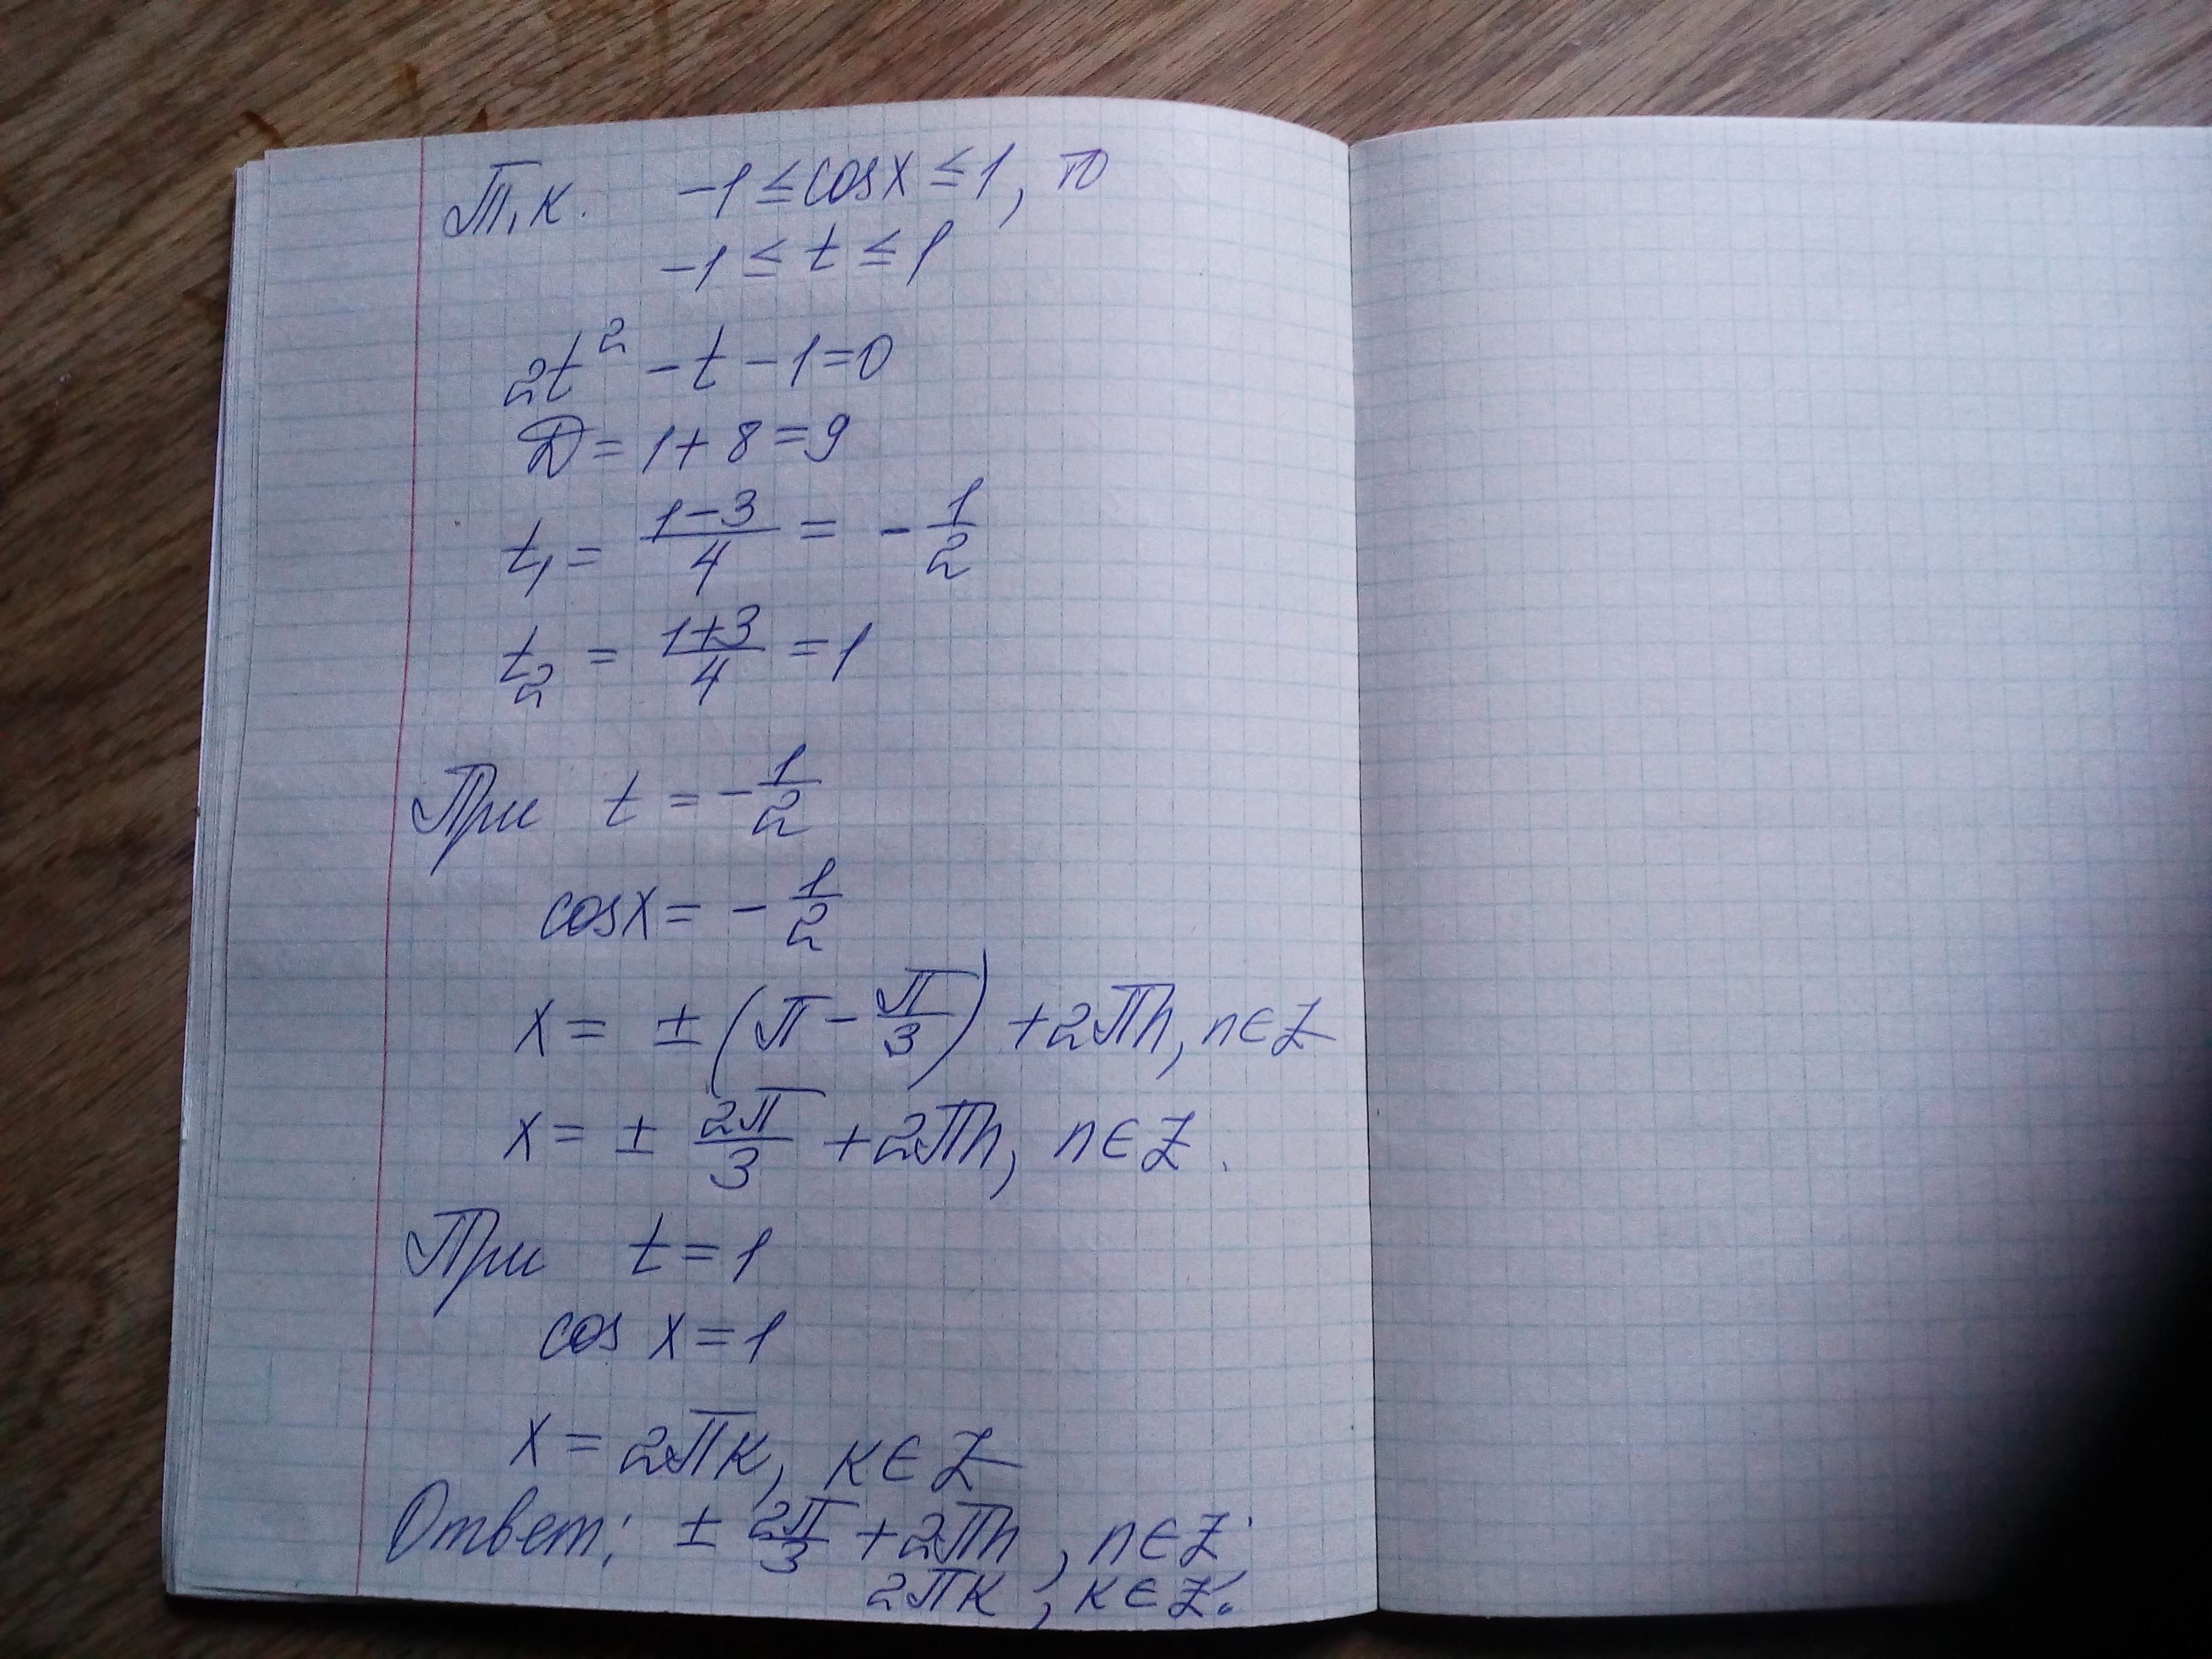 Т.к. -1 ≤ cosx ≤ 1, то
-1 ≤ t ≤ 1
2t² - t - 1 = 0
D = 1 + 8 = 9
t₁ = (1-3)/4 = -1/2
t₂ = (1+3)/4 = 1
При t = -1/2
cosx = -1/2
x = ± (π - π/3) + 2πn, n∈Z
x = ± 2π/3 + 2πn, n∈Z.
При t = 1
cos x = 1
x = 2πк, к∈Z
Ответ: ± 2π/3 + 2πn, n∈Z;
2πк, к∈Z.